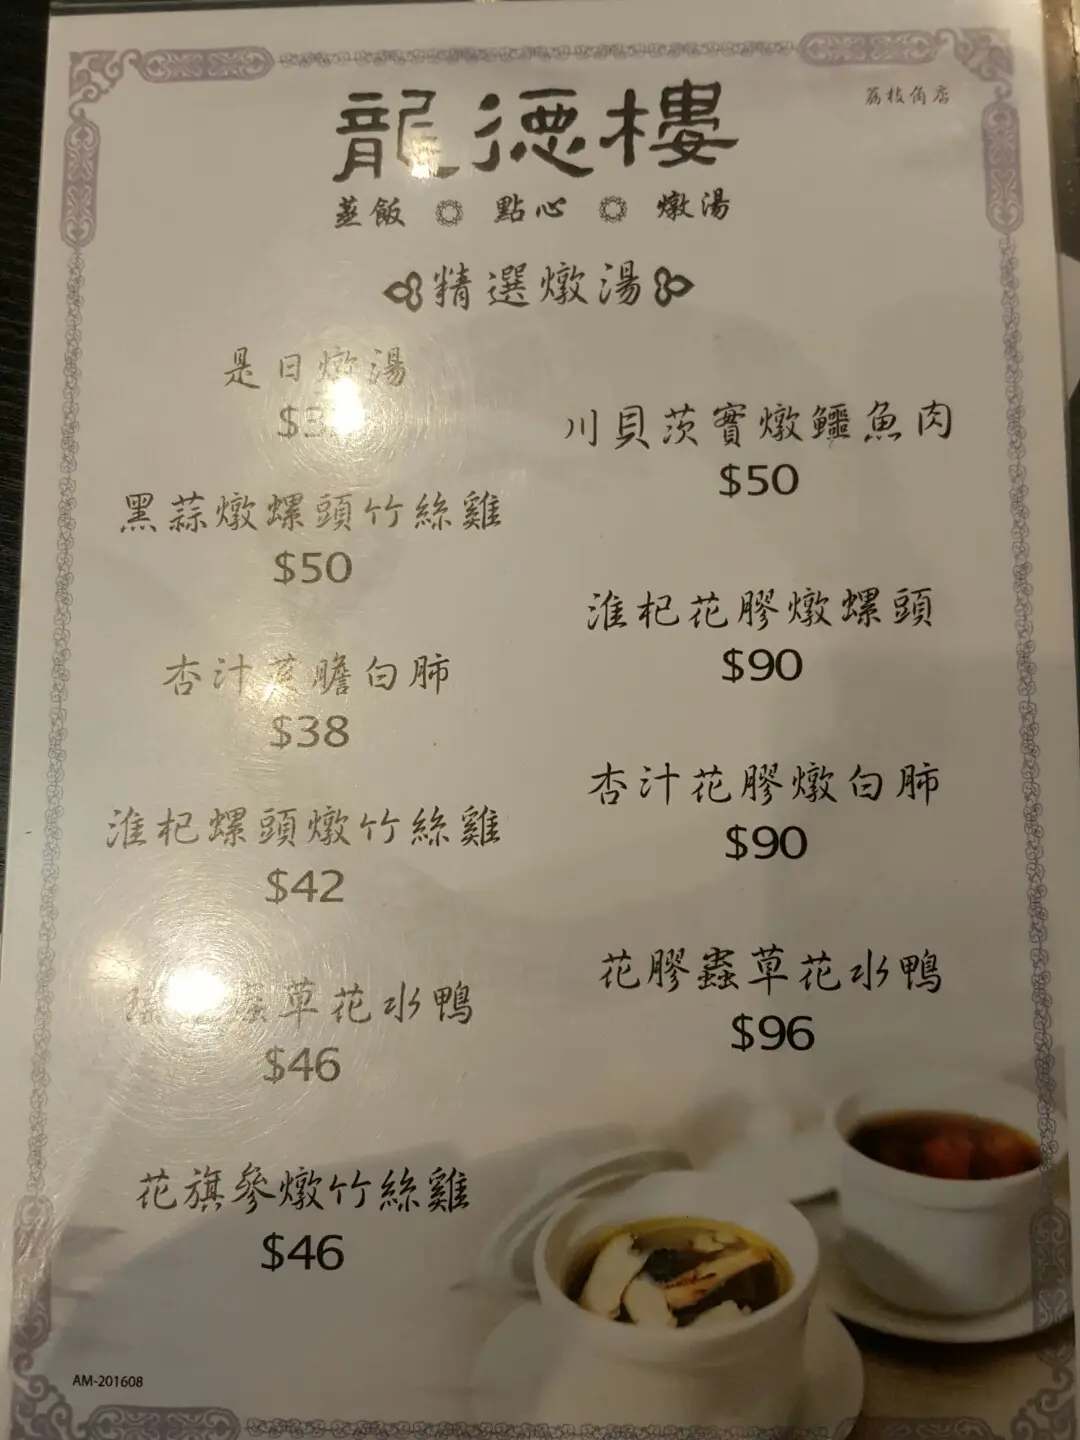 龍德樓
荔枝角店
蒸飯 點心 燉湯
精選燉湯
是日燉湯
$3
黑蒜燉螺頭竹絲雞
$50
杏汁 膽白肺
$38
淮杞螺頭燉竹絲雞
$42
蟲草花水鴨
$46
花旗參燉竹絲雞
$46
川貝茨實燉鱷魚肉
$50
淮杞花膠燉螺頭
$90
杏汁花膠燉白肺
$90
花膠蟲草花水鴨
$96
AM-201608